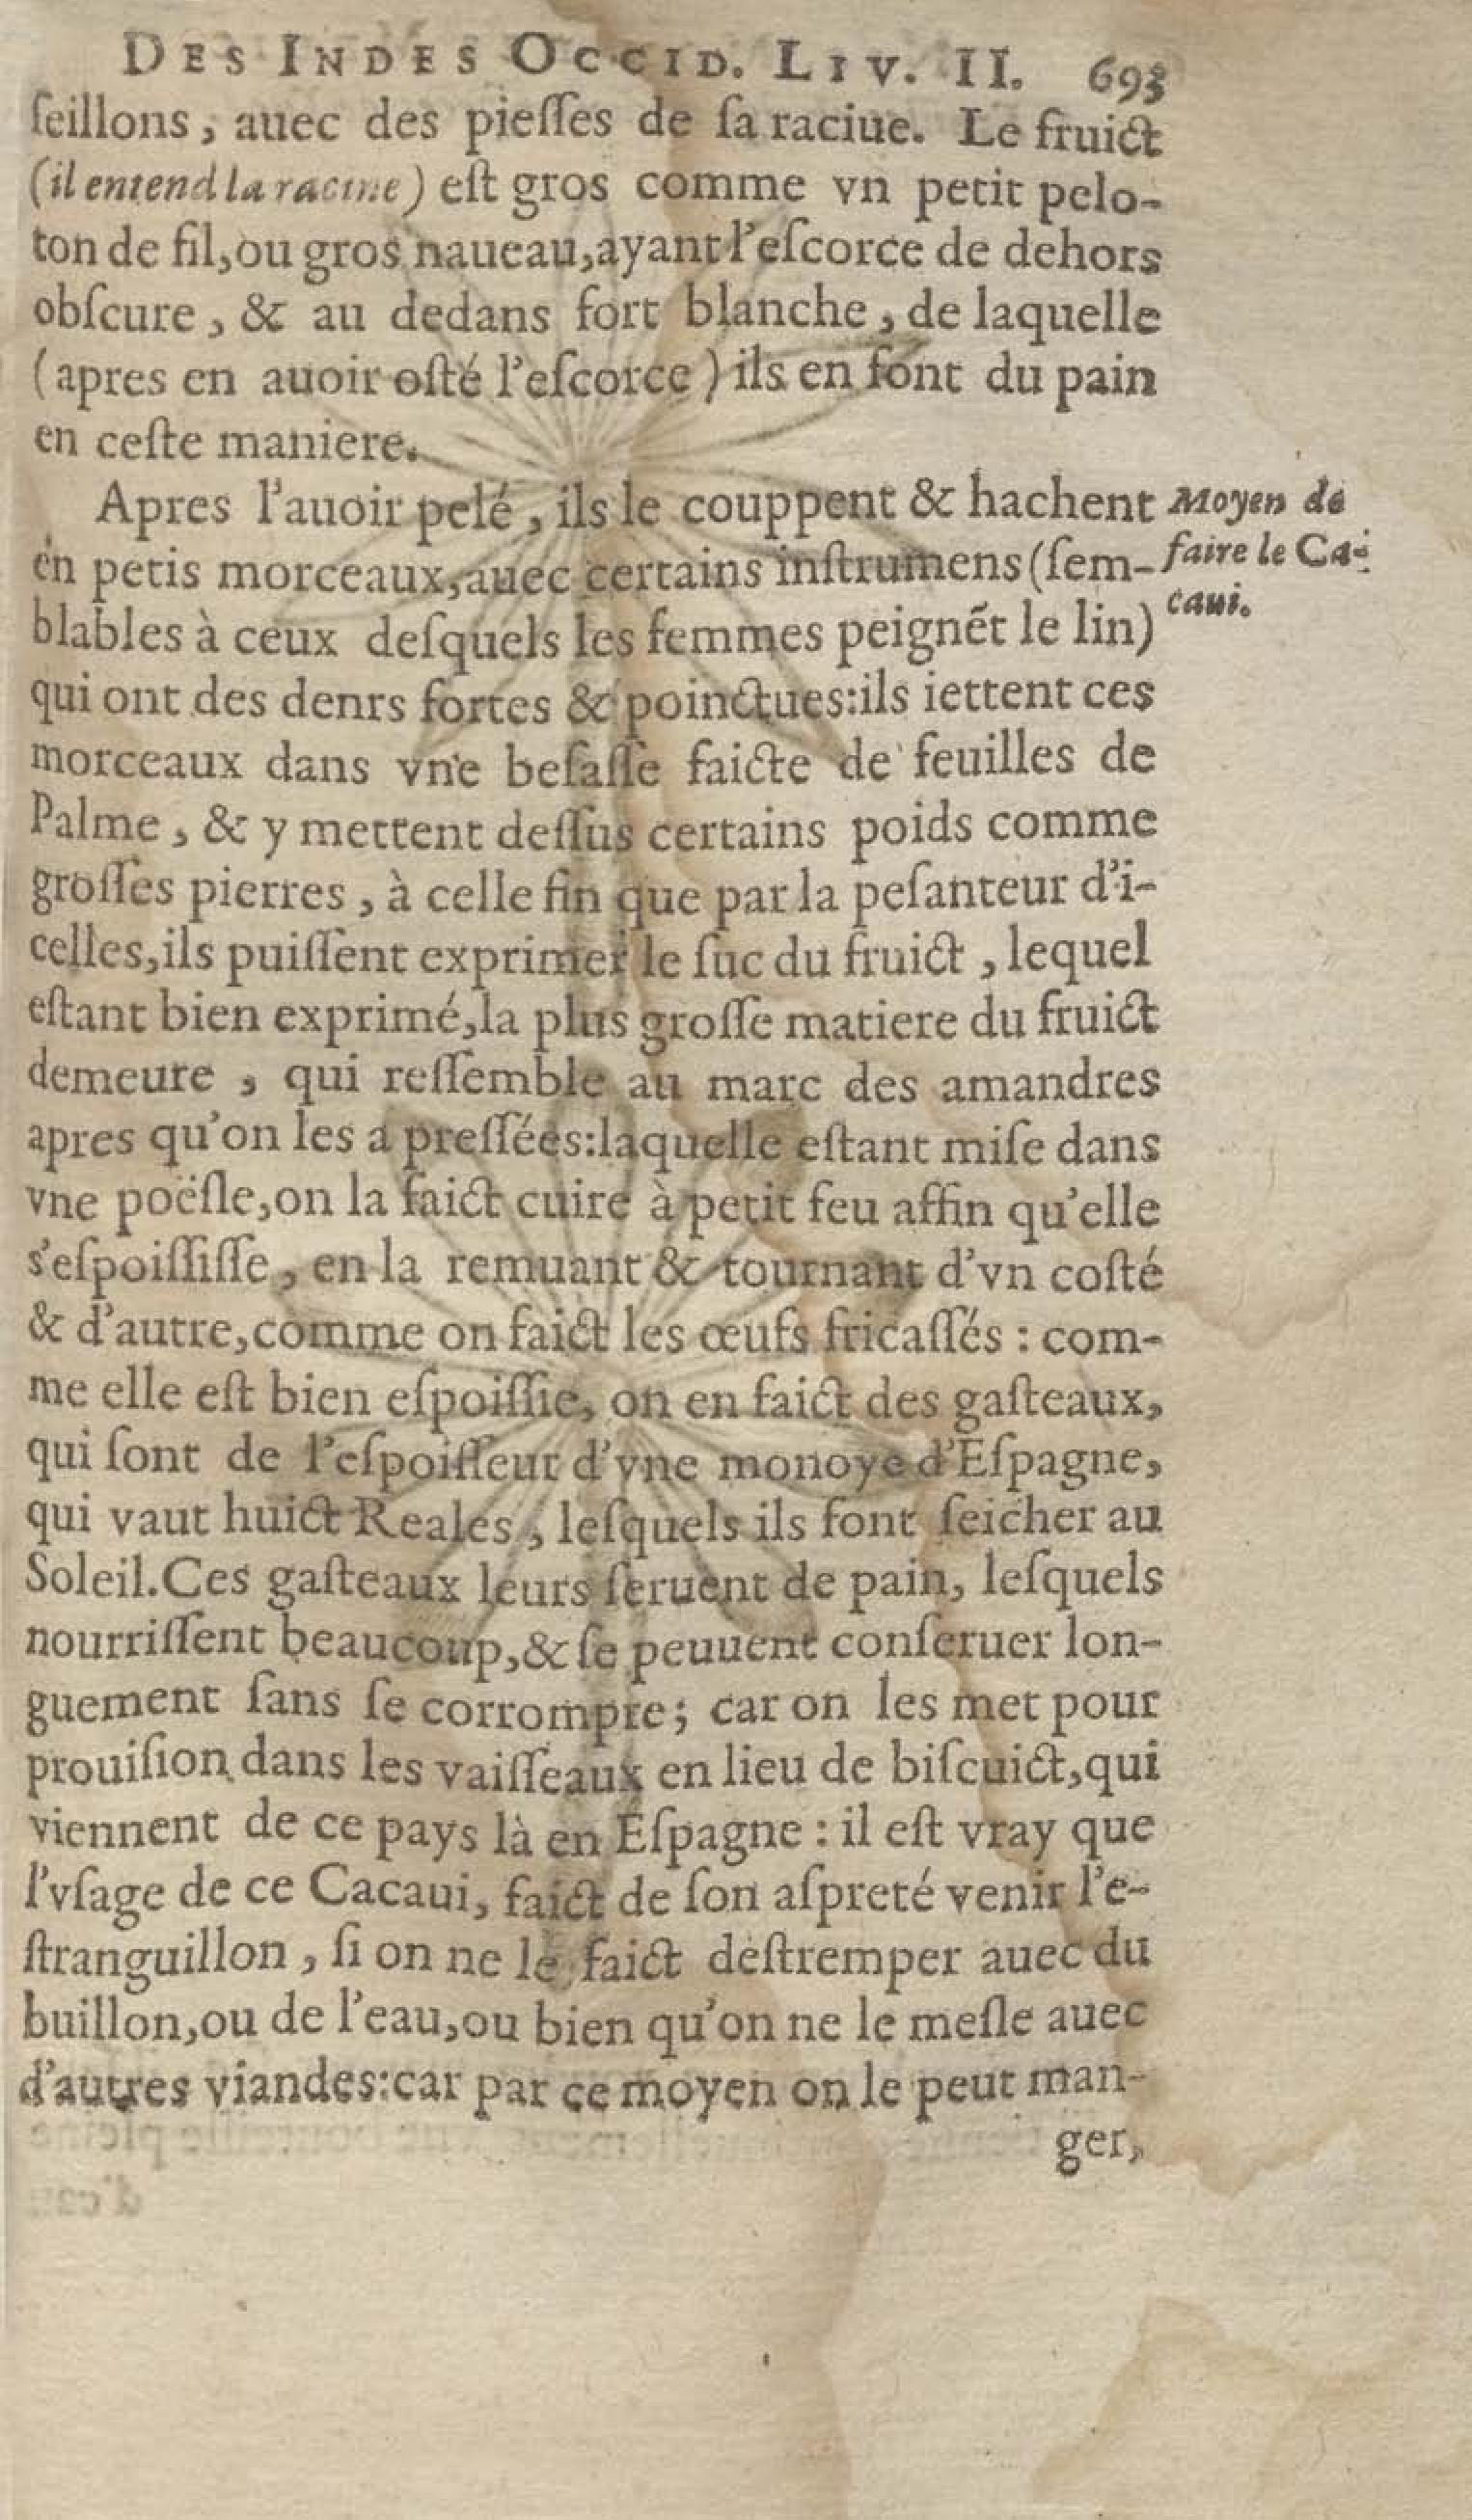 DES INDES OCCID. LIV. II. 693
ſeillons, auec des pieſſes de ſa raciue. Le fruict
(il entend la racine) eſt gros comme vn petit pelo-
ton de fil,ou gros naueau,ayant l'eſcorce de dehors
obſcure, & au dedans fort blanche, de laquelle
(apres en auoir oſté l'eſcorce) ils en font du pain
en ceſte maniere.
Apres l'auoir pelé, ils le couppent & hachent
en petis morceaux,auec certains inſtrumens (ſem-
blables à ceux deſquels les femmes peignẽt le lin)
qui ont des denrs fortes & poinctues:ils iettent ces
morceaux dans vne beſaſſe faicte de feuilles de
Palme, & y mettent deſſus certains poids comme
groſſes pierres, à celle fin que par la peſanteur d'i-
celles,ils puiſſent exprimer le ſuc du fruict, lequel
eſtant bien exprimé,la plus groſſe matiere du fruict
demeure, qui reſſemble au marc des amandres
apres qu'on les a preſſées:laquelle eſtant miſe dans
vne poëſle,on la faict cuire à petit feu affin qu'elle
s'eſpoiſſiſſe, en la remuant & tournant d'vn coſté
& d'autre,comme on faict les œufs fricaſſés : com-
me elle eſt bien eſpoiſſie, on en faict des gaſteaux,
qui ſont de l'eſpoiſſeur d'vne monoye d'Eſpagne,
qui vaut huict Reales, leſquels ils font ſeicher au
Soleil.Ces gaſteaux leurs ſeruent de pain, leſquels
nourriſſent beaucoup,& ſe peuuent conſeruer lon-
guement ſans ſe corrompre; car on les met pour
prouiſion dans les vaiſſeaux en lieu de biſcuict,qui
viennent de ce pays là en Eſpagne : il eſt vray que
l'vſage de ce Cacaui, faict de ſon aſpreté venir l'e-
ſtranguillon, ſi on ne le faict deſtremper auec du
buillon,ou de l'eau,ou bien qu'on ne le meſle auec
d'autres viandes:car par ce moyen on le peut man-
ger,
Moyen de
faire le Ca-
caui.